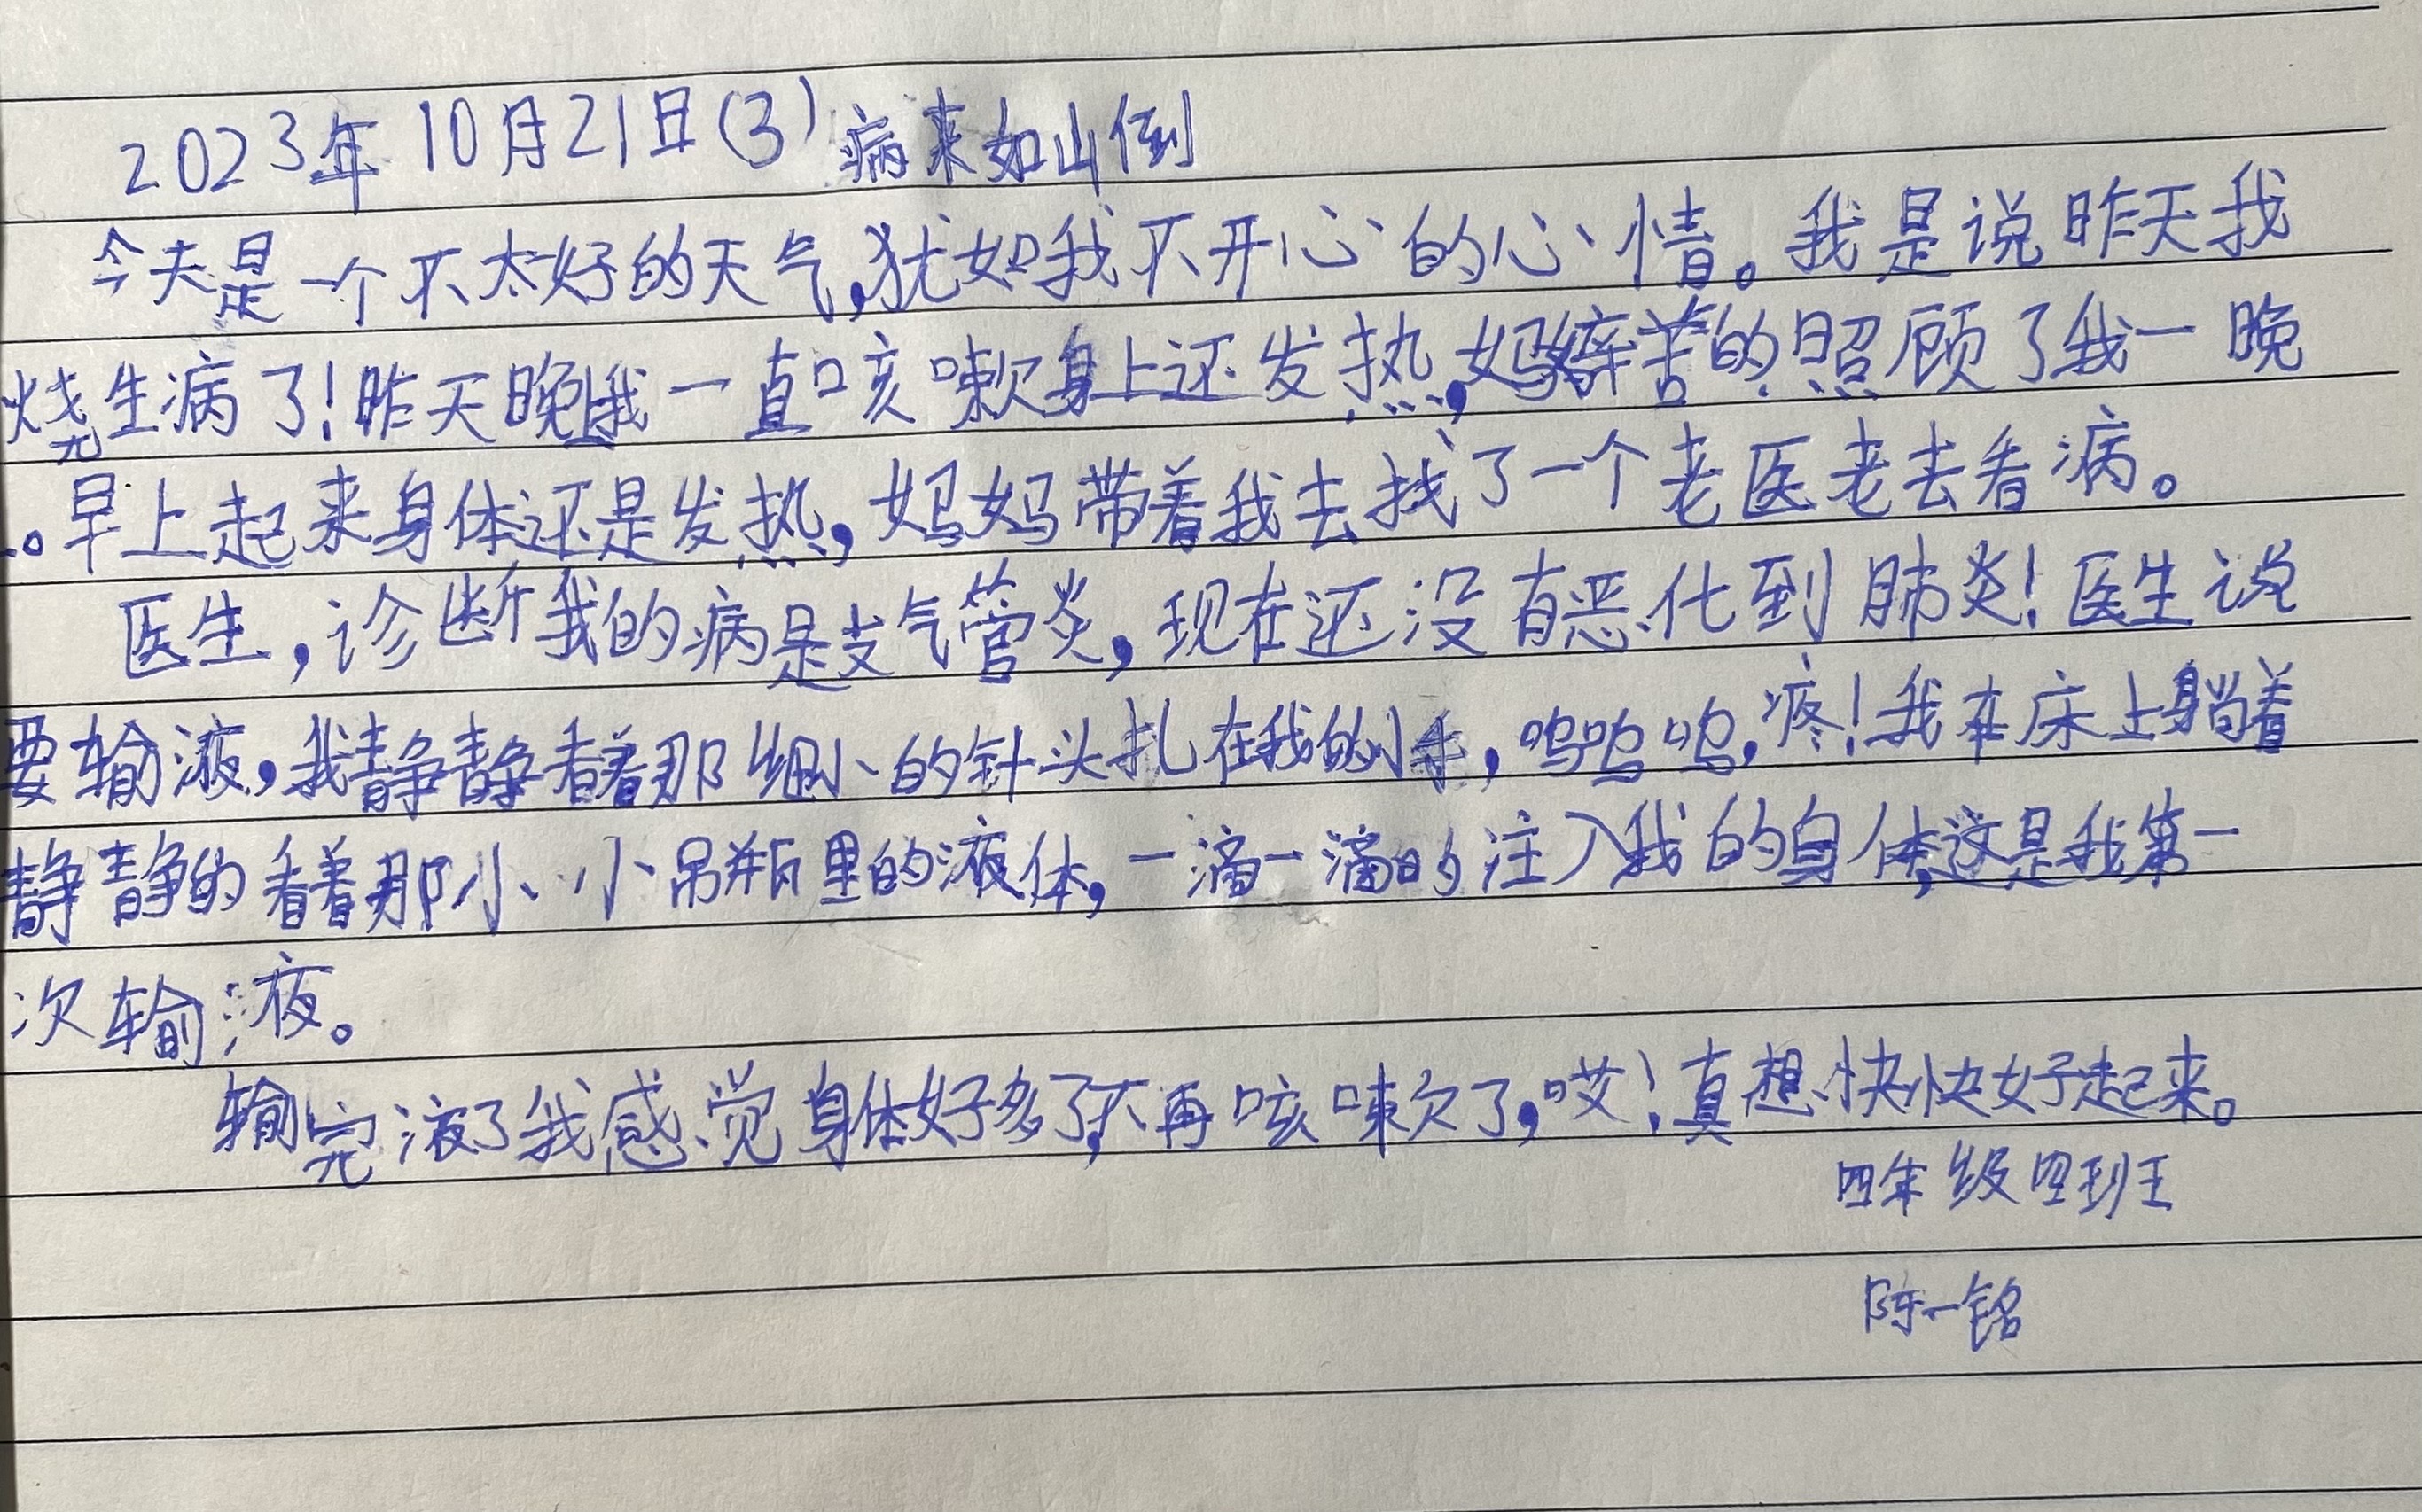 2023年10月21日(3) 病来如山倒
今天是一个不太好的天气,犹如我不开心的心情。我是说昨天我
烧生病了!昨天晚我一直咳嗽身上还发热,妈辛苦的照顾了我一晚
..。早上起来身体还是发热,妈妈带着我去找了一个老医老去看病。
医生,诊断我的病是支气管炎,现在还没有恶化到肺炎!医生说
要输液,我静静看着那细小的针头扎在我的小手,呜呜呜,疼!我在床上躺着
静静的看着那小小吊瓶里的液体,一滴一滴的注入我的身体,这是我第一
次输液。
输完液了我感觉身体好多了,不再咳嗽了,哎!真想快快好起来。
四年级四班
陈一铭